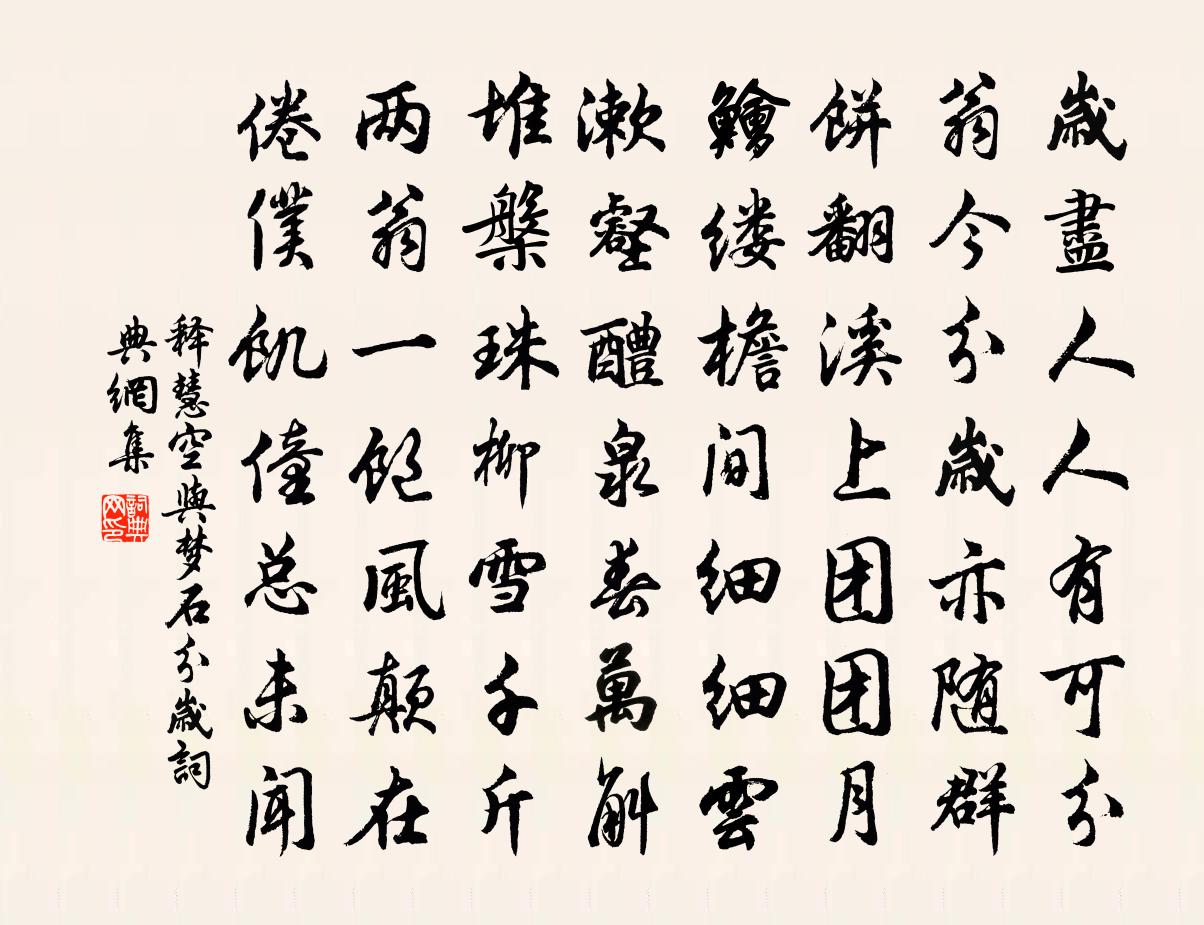 歳盡人人有可分
翁今分歳亦随群
餅翻溪上团团月
鱠缕檐間细细雲
漱壑醴泉春萬斛
堆槃珠柳雪千斤
两翁一飽風颠在
倦僕飢僮总未闻
释慧空與梦石分歳詞
典網集
詞典
网印